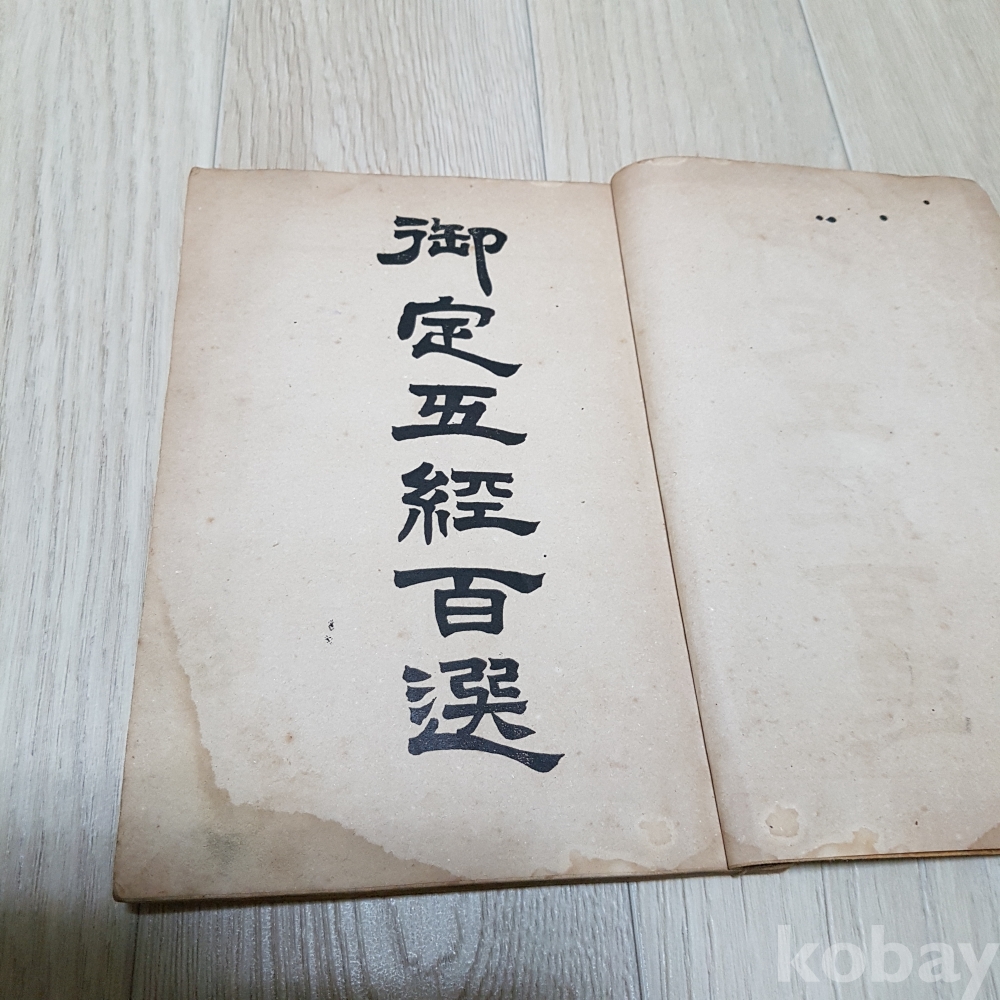 御定五經百選
kobay